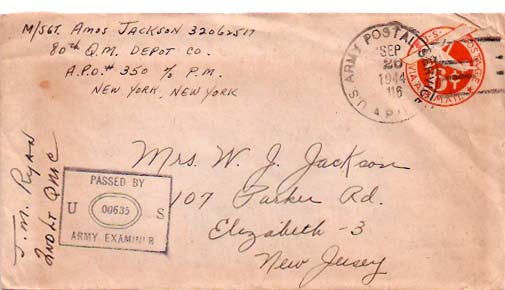 M/SGT. AMOS JACKSON 32062517
80th Q.M. DEPOT CO.
A.P.O.# 350 % P.M.
NEW YORK, NEW YORK
U.S. ARMY POSTAL SERVICE
SEP
20
1944
A.P.O.
U.S. POSTAGE
6¢
VIA AIR MAIL
Mrs. W. J. Jackson
107 Parker Rd.
Elizabeth -3
New Jersey
PASSED BY
U 00635 S
ARMY EXAMINER
J. M. RYAN
2ND LT QMC